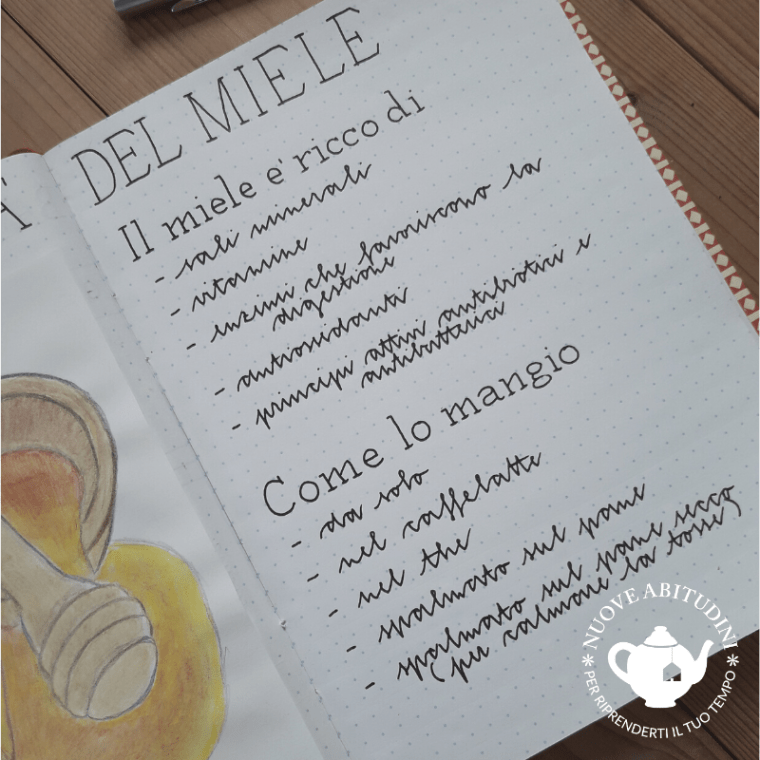 A'
DEL MIELE
Il miele e' ricco di
- sali minerali
- vitamine
- enzimi che favoriscono la
digestione
- antiossidanti
- principi attivi antibiotici e
antibatterici
Come lo mangio
- da solo
- nel caffelatte
- nel the
- spalmato sul pane
- spalmato sul pane secco
(per calmare la tosse)
NUOVE ABITUDINI
* PER RIPRENDERTI IL TUO TEMPO *